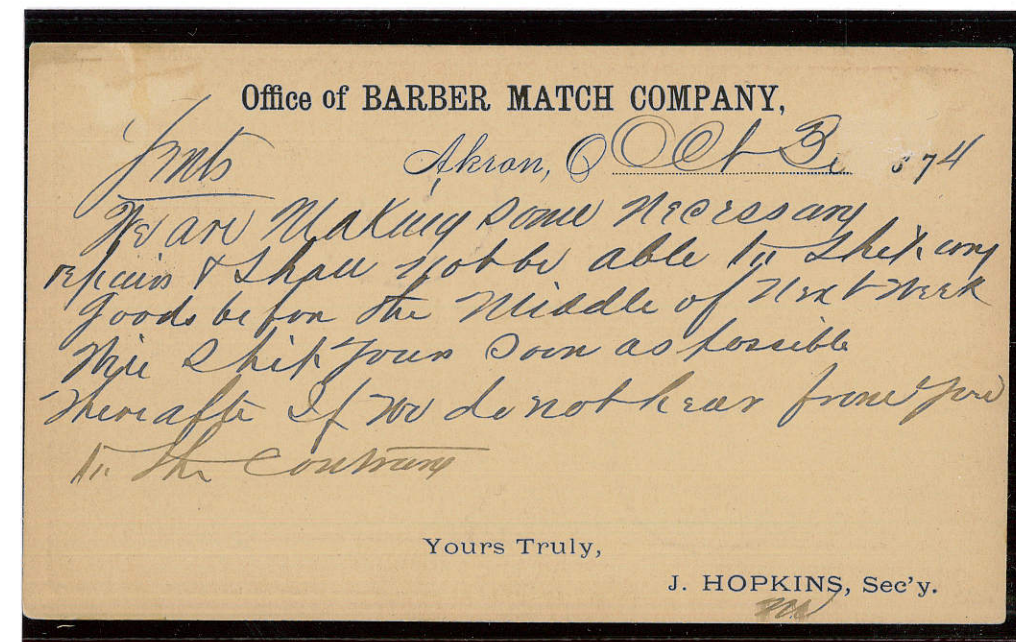 Office of BARBER MATCH COMPANY,
Gents Akron, O Oct 3 1874
We are Making some Necessary
repairs & shall not be able to ship any
goods before the Middle of Next Week
Will ship yours soon as possible
thereafter If we do not hear from you
to the contrary
Yours Truly,
J. HOPKINS, Sec'y.